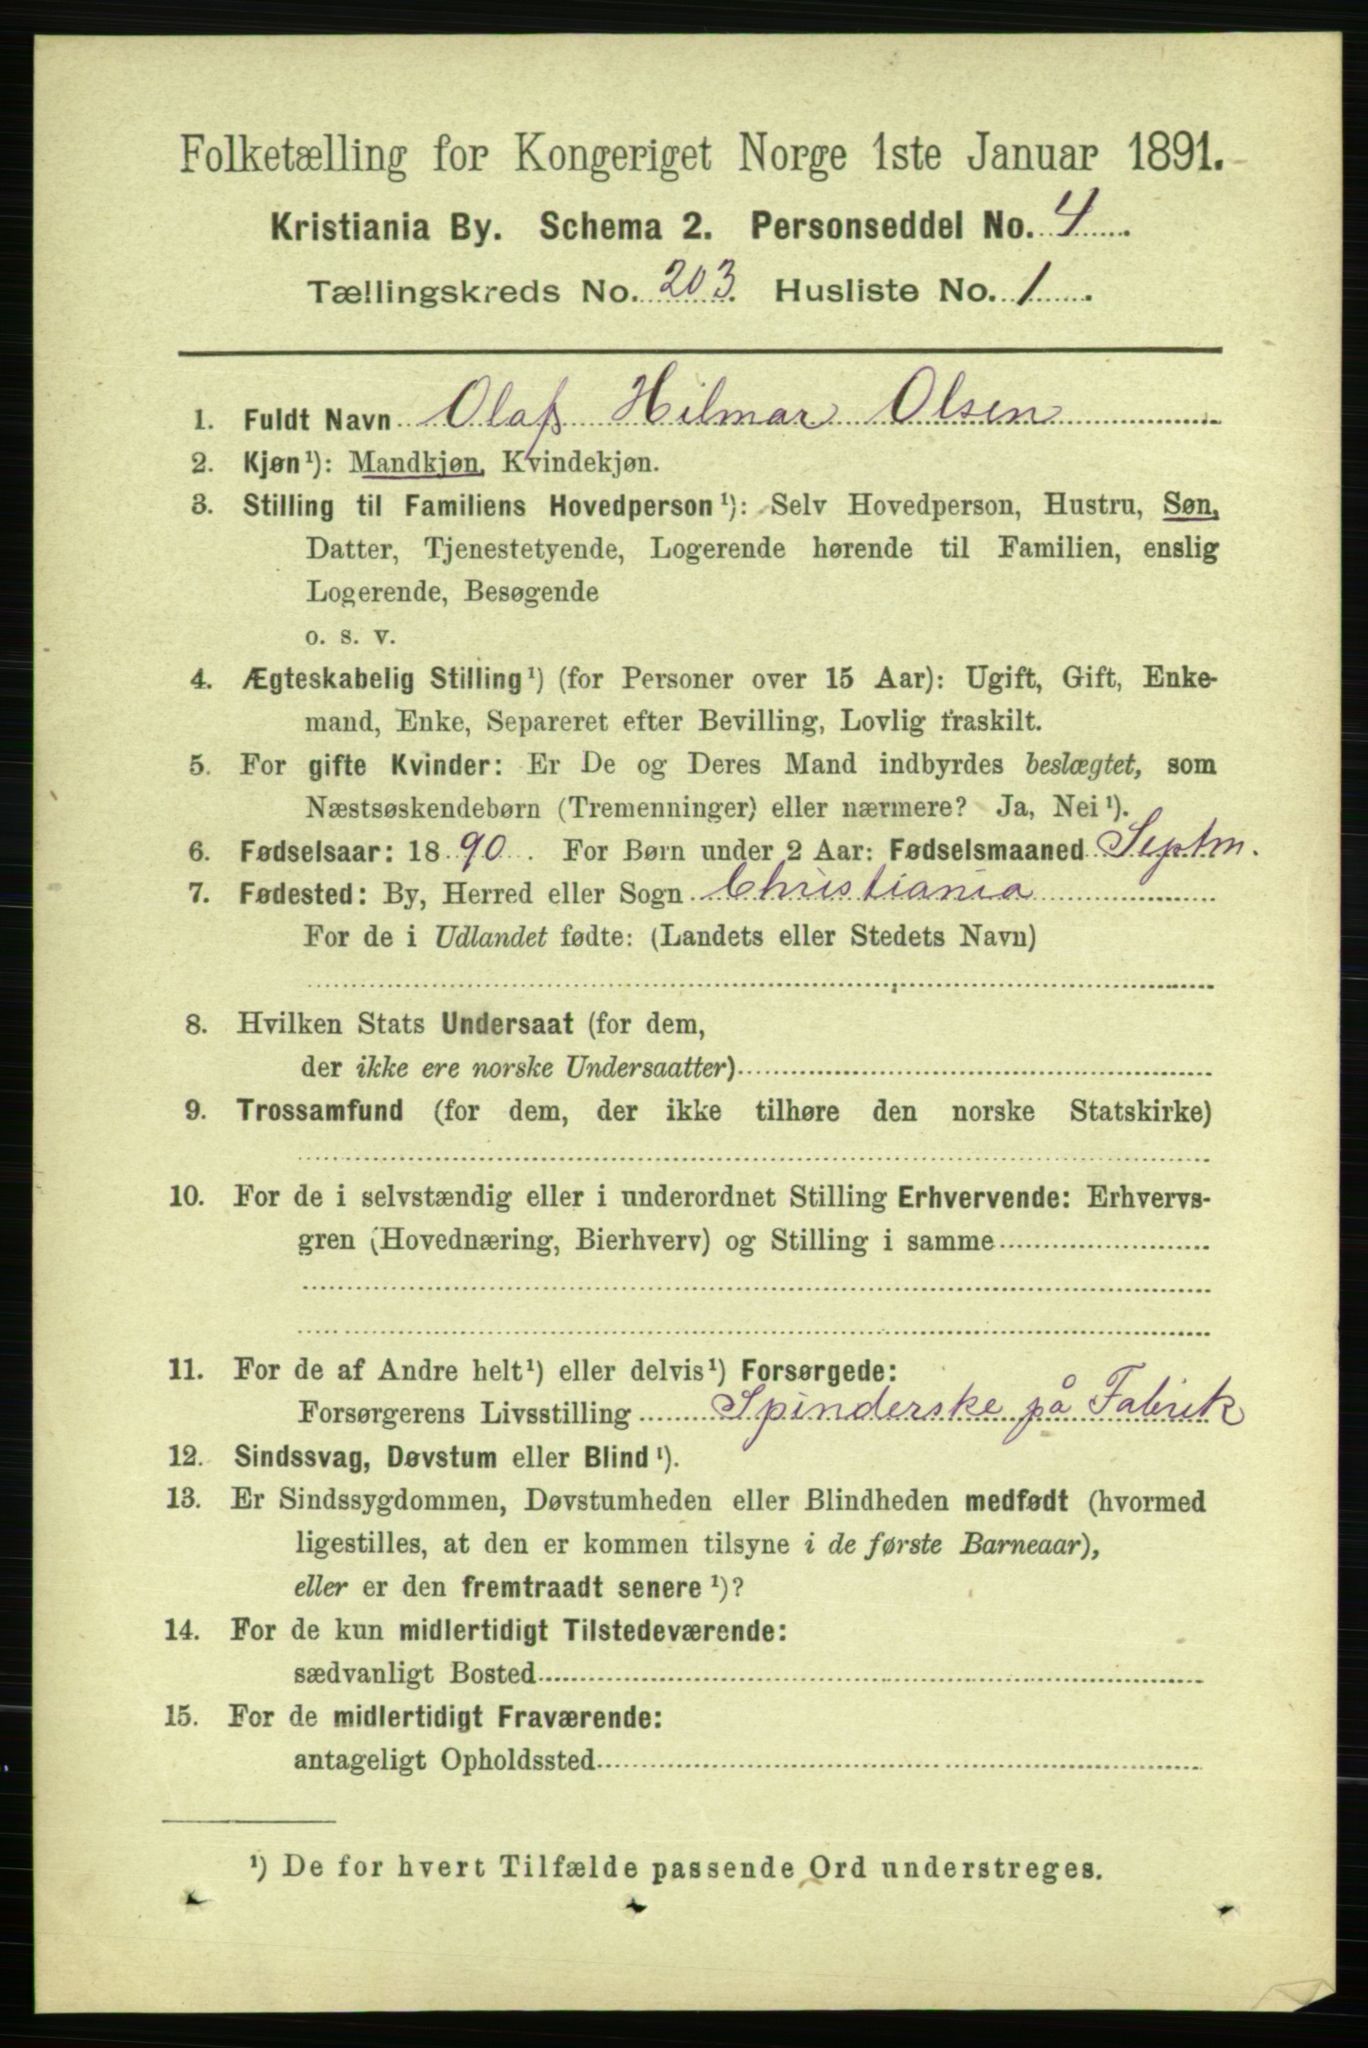 Folketælling for Kongeriget Norge 1ste Januar 1891.
Kristiania By. Schema 2. Personseddel No. 4
Tællingskreds No. 203. Husliste No. 1
1. Fuldt Navn Olaf Hilmar Olsen
2. Kjøn¹): Mandkjøn, Kvindekjøn.
3. Stilling til Familiens Hovedperson¹): Selv Hovedperson, Hustru, Søn,
Datter, Tjenestetyende, Logerende hørende til Familien, enslig
Logerende, Besøgende
o. s. v.
4. Ægteskabelig Stilling¹) (for Personer over 15 Aar): Ugift, Gift, Enke-
mand, Enke, Separeret efter Bevilling, Lovlig fraskilt.
5. For gifte Kvinder: Er De og Deres Mand indbyrdes beslægtet, som
Næstsøskendebørn (Tremenninger) eller nærmere? Ja, Nei¹).
6. Fødselsaar: 1890. For Børn under 2 Aar: Fødselsmaaned Septm.
7. Fødested: By, Herred eller Sogn Christiania
For de i Udlandet fødte: (Landets eller Stedets Navn)
8. Hvilken Stats Undersaat (for dem,
der ikke ere norske Undersaatter)
9. Trossamfund (for dem, der ikke tilhøre den norske Statskirke)
10. For de i selvstændig eller i underordnet Stilling Erhvervende: Erhvervs-
gren (Hovednæring, Bierhverv) og Stilling i samme
11. For de af Andre helt¹) eller delvis¹) Forsørgede:
Forsørgerens Livsstilling Spinderske på Fabrik
12. Sindssvag, Døvstum eller Blind¹).
13. Er Sindssygdommen, Døvstumheden eller Blindheden medfødt (hvormed
ligestilles, at den er kommen tilsyne i de første Barneaar),
eller er den fremtraadt senere¹)?
14. For de kun midlertidigt Tilstedeværende:
sædvanligt Bosted
15. For de midlertidigt Fraværende:
antageligt Opholdssted
¹) De for hvert Tilfælde passende Ord understreges.